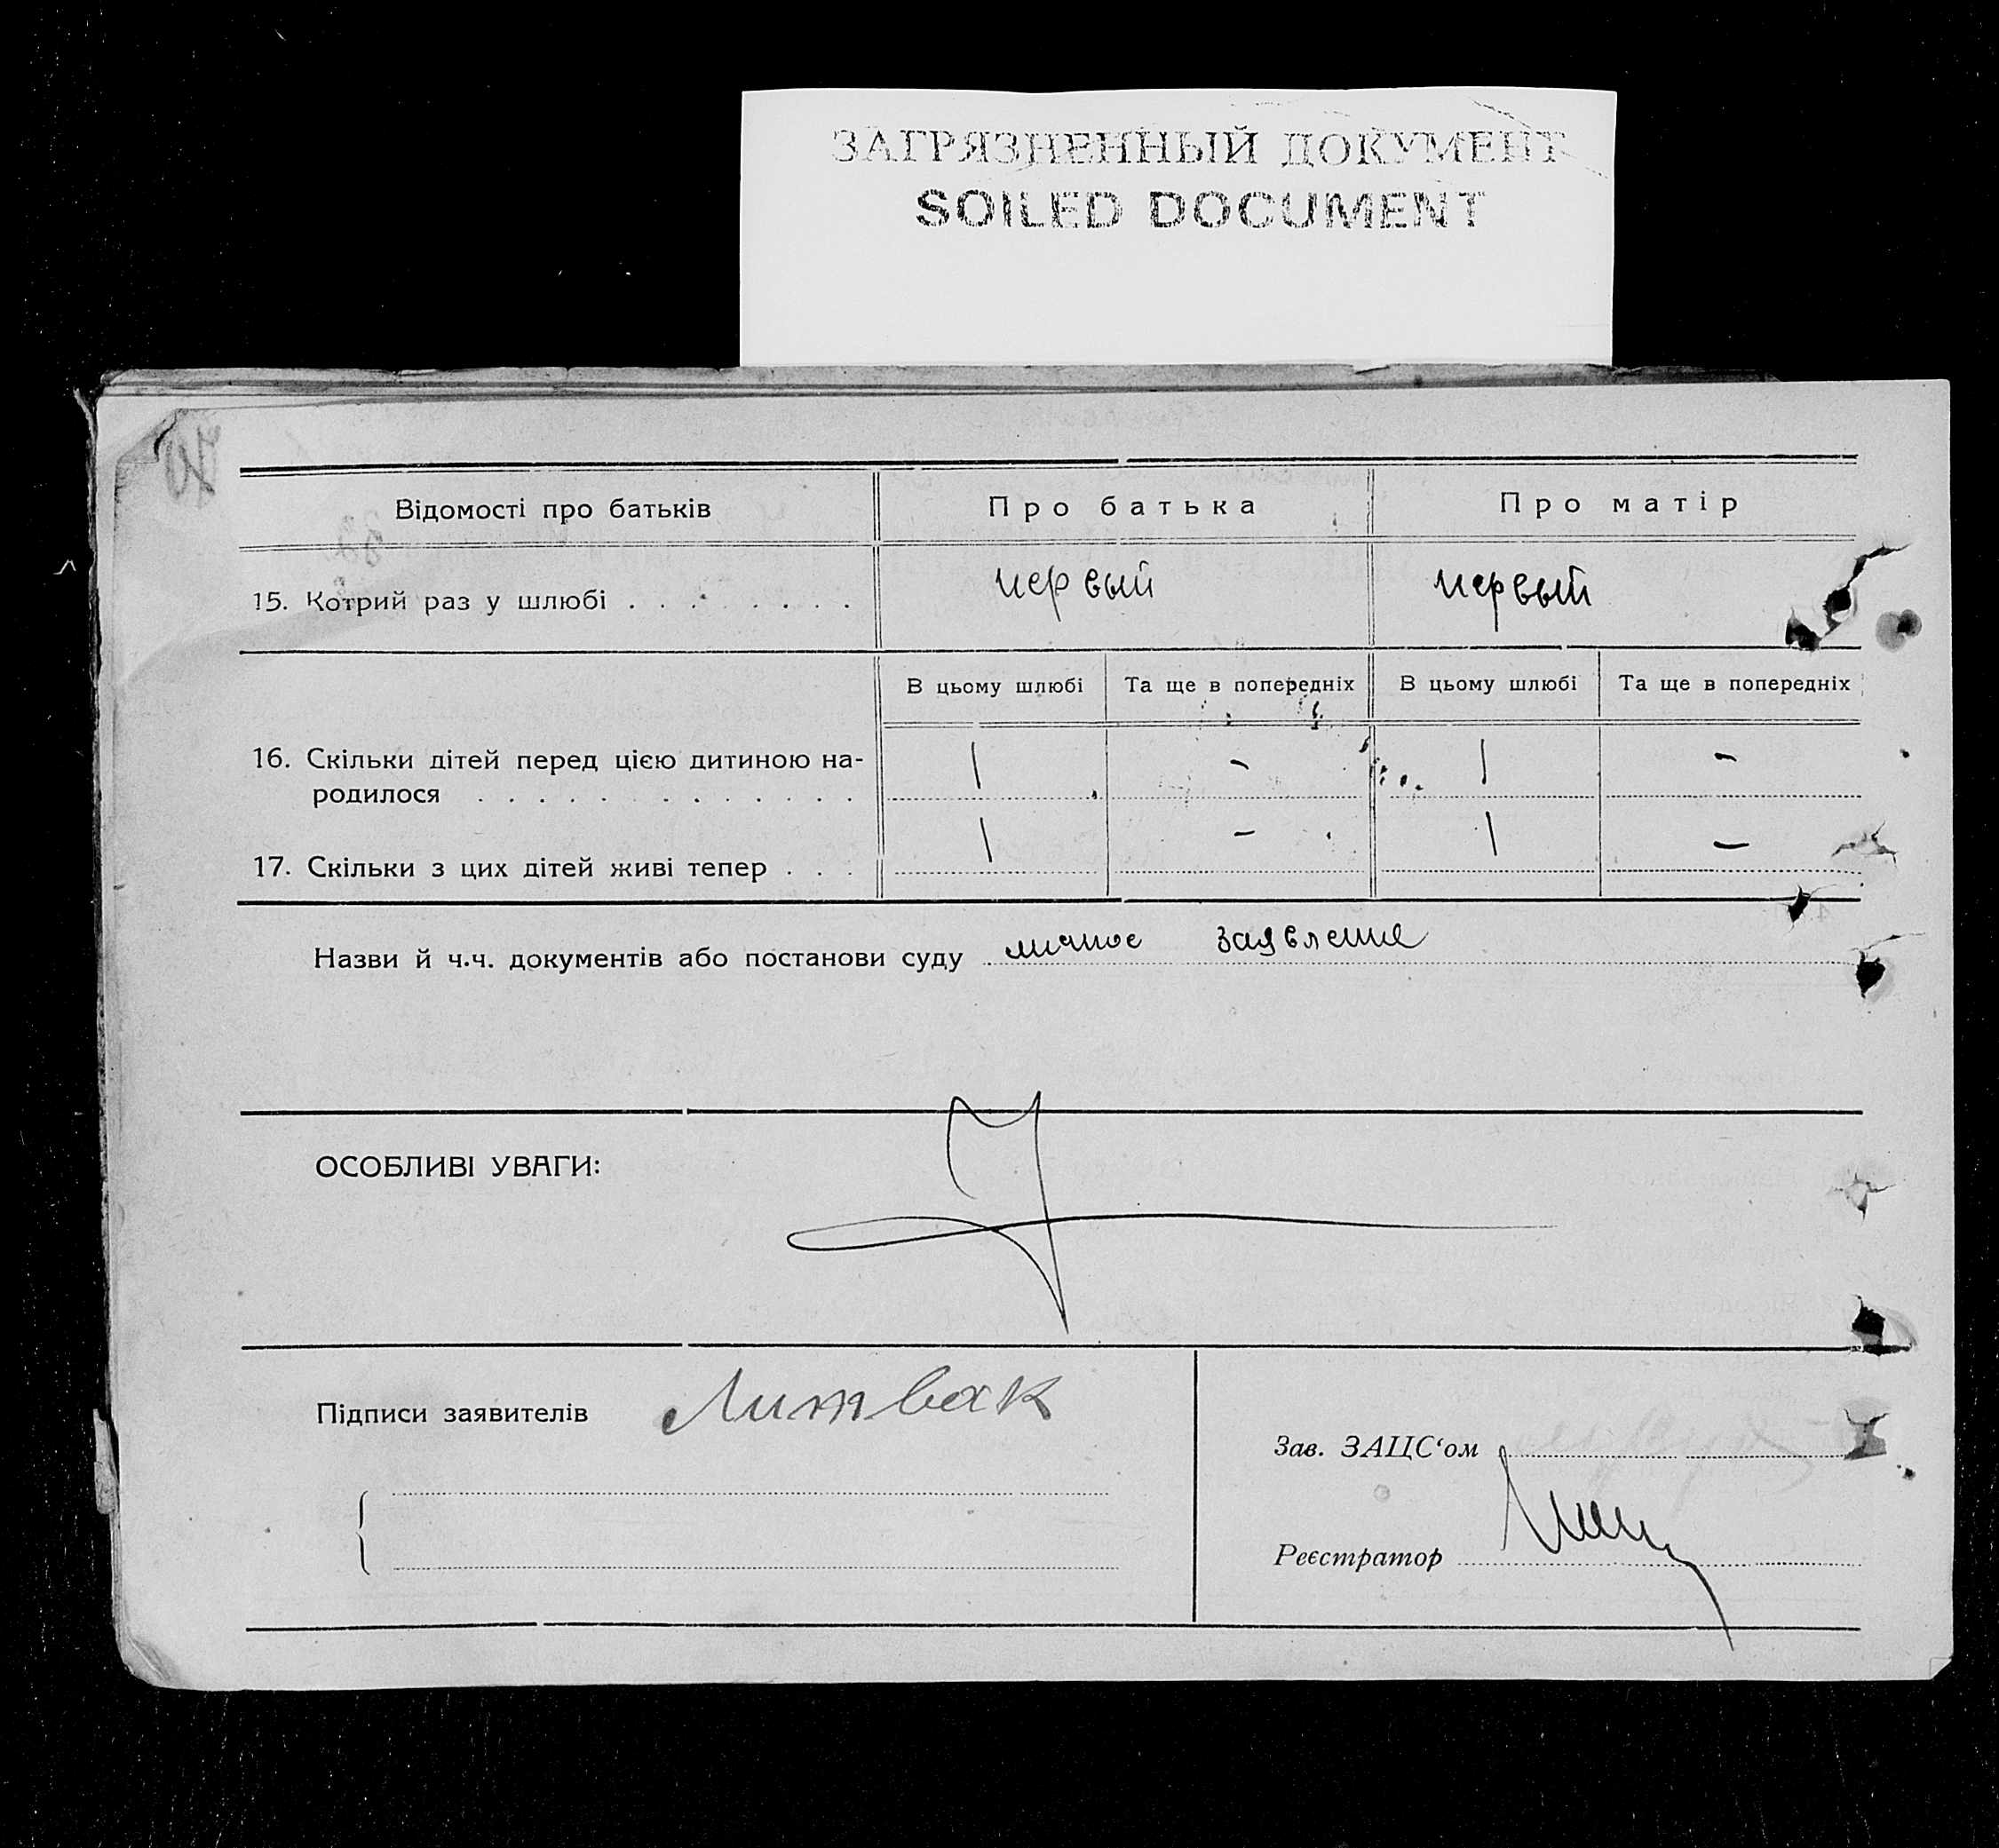 ЗАГРЯЗНЕННЫЙ ДОКУМЕНТ
SOILED DOCUMENT
Відомості про батьків Про батька Про матір
15. Котрий раз у шлюбі . . . . . . . . первый первый
В цьому шлюбі Та ще в попередніх В цьому шлюбі Та ще в попередніх
16. Скільки дітей перед цією дитиною на-
родилося . . . . . . . . . . . . . 1 - 1 -
17. Скільки з цих дітей живі тепер . . . 1 - 1 -
Назви й ч.ч. документів або постанови суду личное заявление
ОСОБЛИВІ УВАГИ:
Підписи заявителів Литвак
Зав. ЗАЦС‘ом
Реєстратор